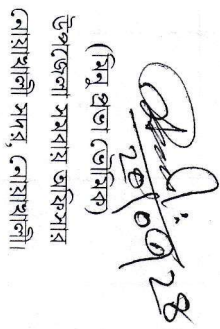 ২৪/০৫/২৪
(মিনু প্রভা ভৌমিক)
উপজেলা সমবায় অফিসার
নোয়াখালী সদর, নোয়াখালী।